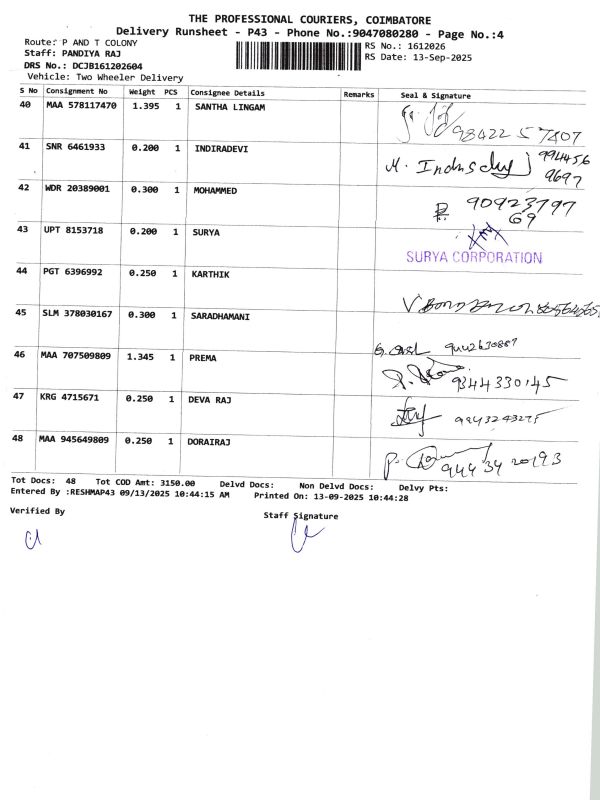 THE PROFESSIONAL COURIERS, COIMBATORE
Delivery Runsheet - P43 - Phone No.:9047080280 - Page No.:4
Route: P AND T COLONY
Staff: PANDIYA RAJ
DRS No.: DCJB161202604
Vehicle: Two Wheeler Delivery
RS No.: 1612026
RS Date: 13-Sep-2025
S No Consignment No Weight PCS Consignee Details Remarks Seal & Signature
40 MAA 578117470 1.395 1 SANTHA LINGAM 98422 57807
41 SNR 6461933 0.200 1 INDIRADEVI 994456
9697
42 WDR 20389001 0.300 1 MOHAMMED 90923797
69
43 UPT 8153718 0.200 1 SURYA
SURYA CORPORATION
44 PGT 6396992 0.250 1 KARTHIK
45 SLM 378030167 0.300 1 SARADHAMANI
46 MAA 707509809 1.345 1 PREMA 9344330145
47 KRG 4715671 0.250 1 DEVA RAJ 9943243275
48 MAA 945649809 0.250 1 DORAIRAJ 944 34 20193
Tot Docs: 48 Tot COD Amt: 3150.00 Delvd Docs: Non Delvd Docs: Delvy Pts:
Entered By :RESHMAP43 09/13/2025 10:44:15 AM Printed On: 13-09-2025 10:44:28
Verified By
Staff Signature